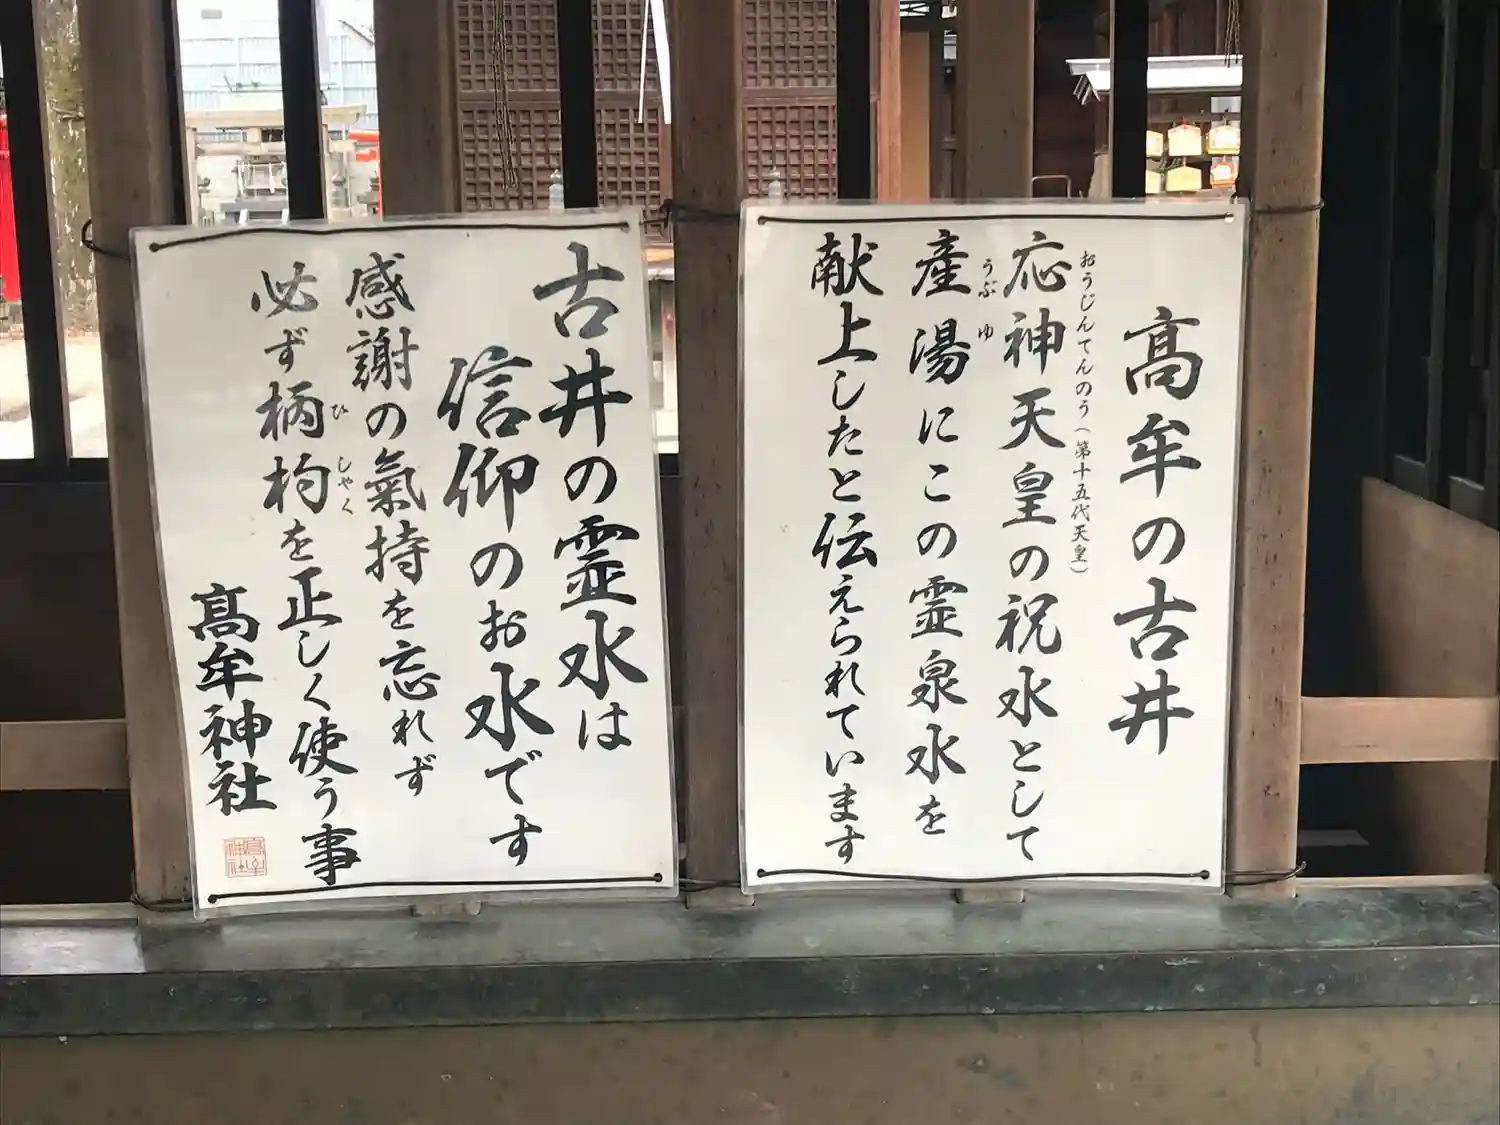 髙牟の古井
おうじんてんのう（第十五代天皇）
応神天皇の祝水として
うぶゆ
産湯にこの霊泉水を
献上したと伝えられています
古井の霊水は
信仰のお水です
感謝の氣持を忘れず
ひしゃく
必ず柄杓を正しく使う事
髙牟神社
髙牟神社